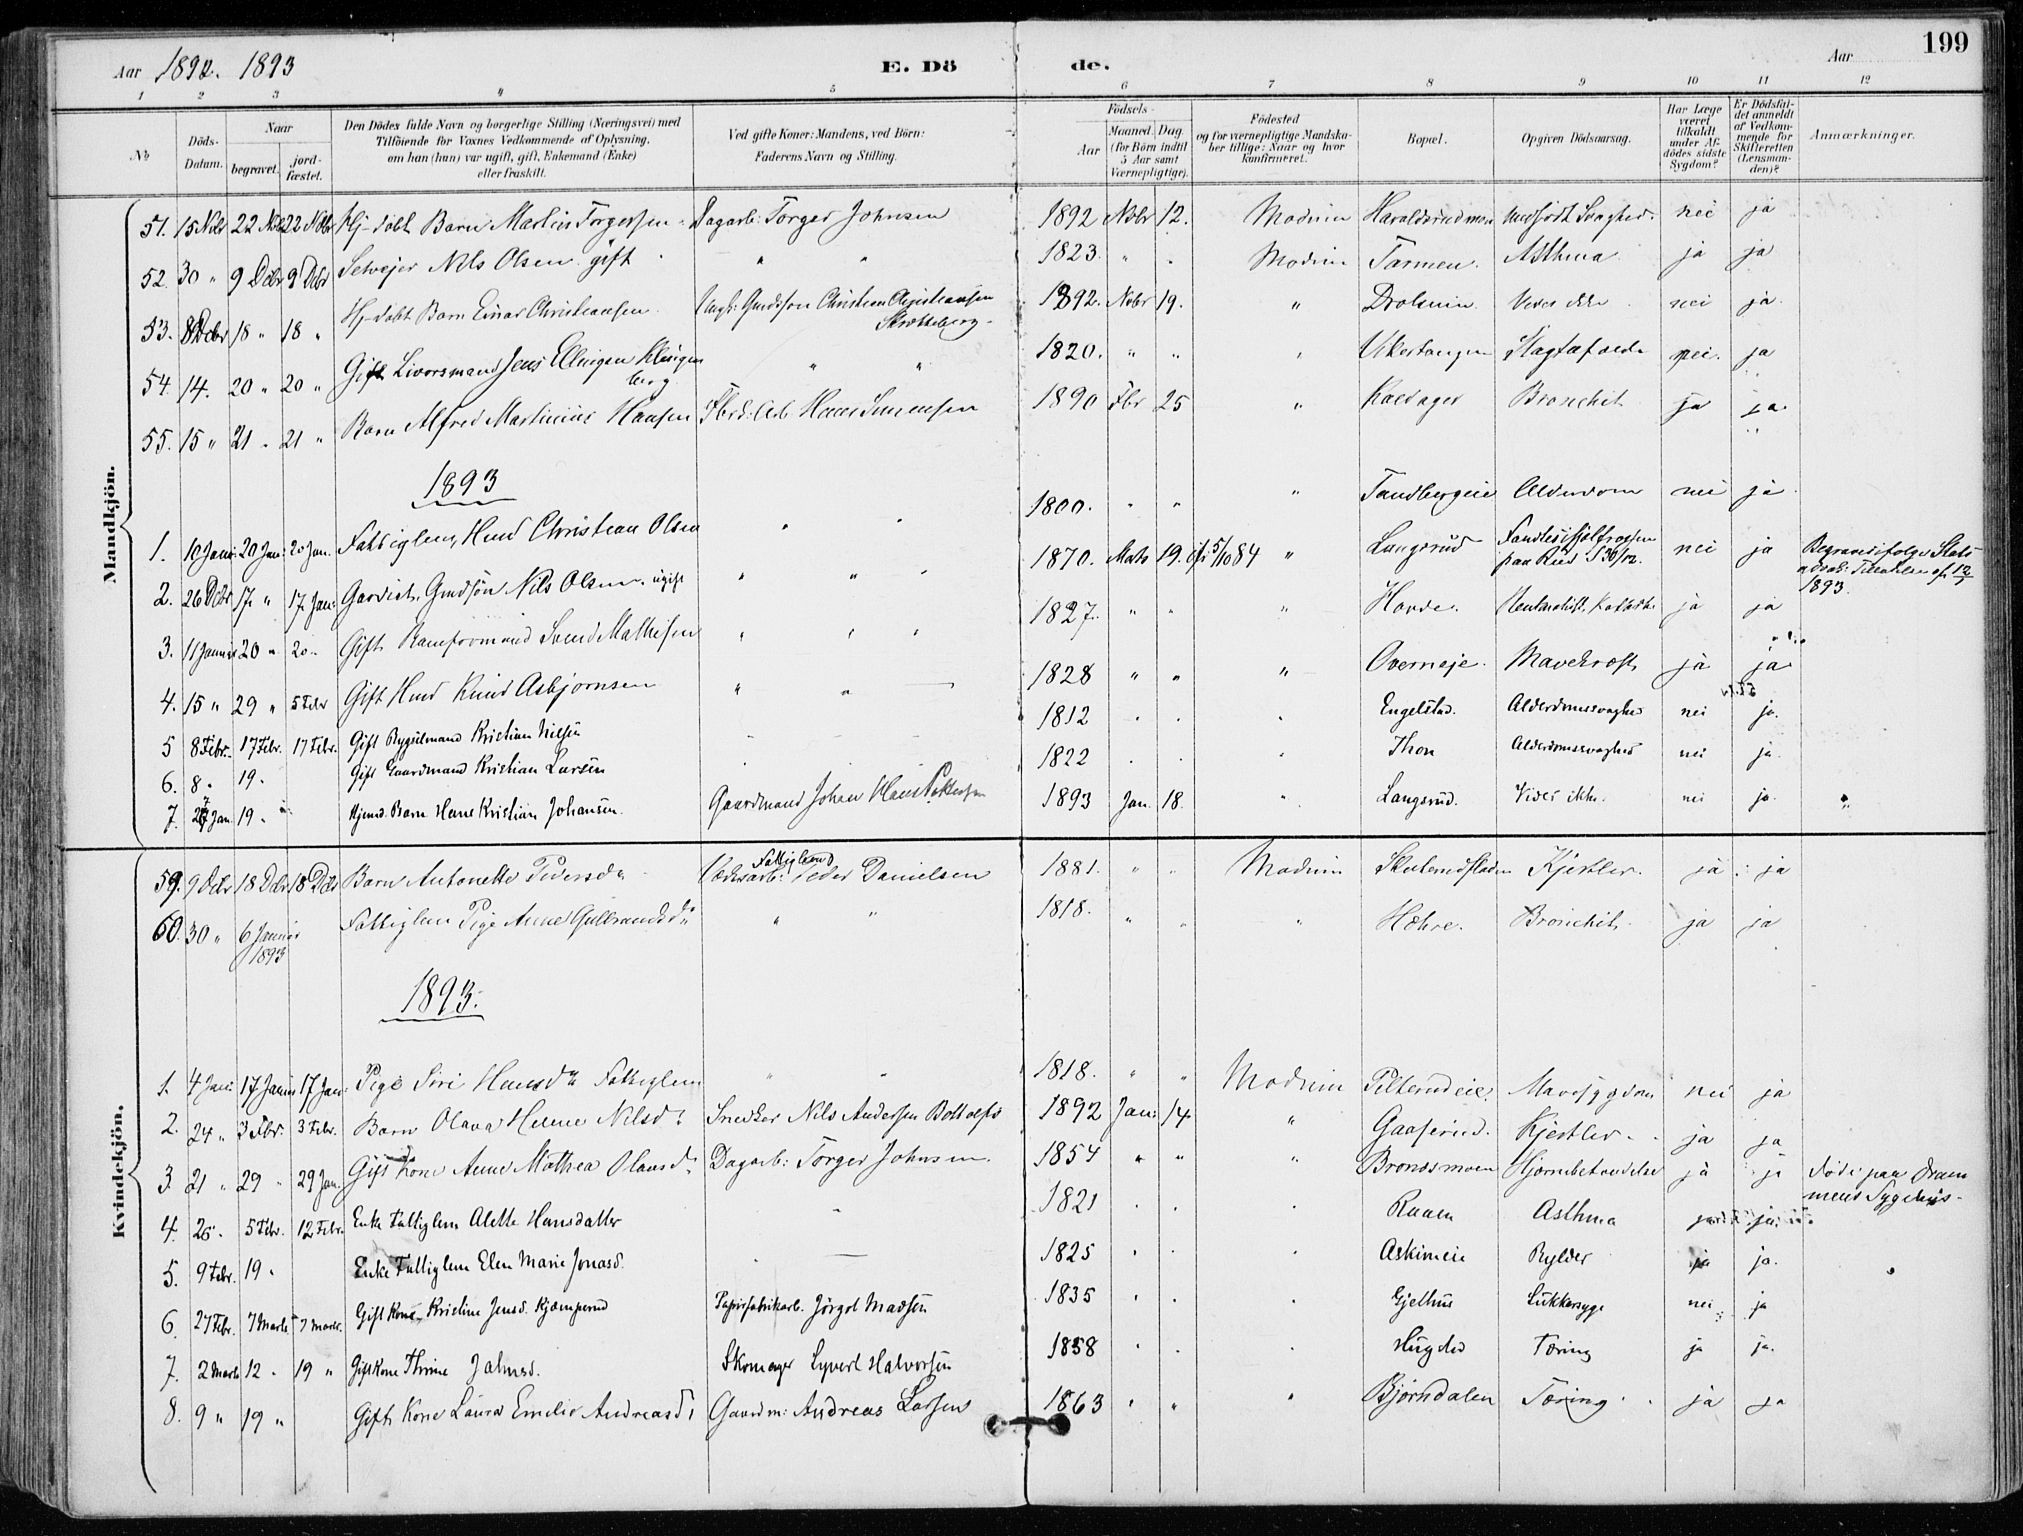 199
Aar 1892. 1893
E. Dö de.
Aar
1 2 3 4 5 6 7 8 9 10 11 12
№
Döds-Datum.
Naar
begravet.
jord-fæstet.
Den Dödes fulde Navn og borgerlige Stilling (Næringsvei) med
Tilföiende for Voxnes Vedkommende af Oplysning,
om han (hun) var ugift, gift, Enkemand (Enke)
eller fraskilt.
Ved gifte Koner: Mandens, ved Börn:
Faderens Navn og Stilling.
Födsels-
Aar
Maaned. Dag.
(for Börn indtil
5 Aar samt
Værnepligtige).
Födested
og for værnepligtige Mandska-
ber tillige: Naar og hvor
konfirmeret.
Bopæl.
Opgiven Dödsaarsag.
Har Læge
været
tilkaldt
under Af-
dödes sidste
Sygdom?
Er Dödsfal-
det anmeldt
af Vedkom-
mende for
Skifteretten
(Lensman-
den)?
Anmærkninger.
Mandkjön.
51. 15 Nvbr 22 Nvbr 22 Nvbr Hj-döbt Barn Martin Torgersen Dagarb: Torger Johnsen 1892 Nvbr 12. Modum Haraldsrudmoen Medfødt Svaghed. nei ja
52. 30 " 9 Dcbr 9 Dcbr Selvejer Nils Olsen gift " " 1823. " " Modum Tarmen. Asthma ja ja
53. 8 Dcbr 18 " 18 " Hj-döbt Barn Einar Christiansen Ungk: Gmdsøn Christian Christiansen 1892. Nvbr 19. " Drolsum. Vides ikke nei ja
54. 14. 20 " 20 " Gift Livorsmand Jens Ellingsen Klingen
berg " " 1820. " " " Vikertangen Slagtilfælde nei. ja
55. 15 " 21 " 21 " Barn Alfred Martinius Hansen Hans Sørensen 1890 Fbr 25 " Kaldager Bronchit ja ja
1893
1. 10 Janr: 20 Jan: 20 Jan. Fattiglem, Husmd Christian Olsen " " 1800. " " " Tandbergeie Alderdom nei ja
2. 26 Dcbr 17 " 17 Jan: Gaardbr. Gmdsøn Nils Olsen, ugift " " " 1870. Mats 19. 5/10 84 " Langerud nei ja
1893.
3. 11 Januar 20 " 20 " Gift Mathisen " " " 1827. " " " Hovde. ja ja
4. 15 " 29 " 5 Febr Gift Husmd Knud Asbjørnsen " " 1828 " " " Overneje. Mavekræft, ja ja
5 8 Febr. 17 Febr. 17 Febr. Gift Bygselmand Kristian Nilsen 1812 Engelstad. Alderdomssvaghed nei ja.
6. 8 " 19 " Gift Gaardmand Kristian Larsen 1822 Thon Alderdomssvaghed nei ja.
7. 27 Jan 19 " Hjemd. Barn Hans Kristian Johansen. Gaardmand Johan Hans 1893 Jan. 18. " Langerud. Vides ikke. nei ja. "
Kvindekjön.
59. 9 Dcbr 18 Dcbr 18 Dcbr Barn Antonette Pedersd Fattiglem Peder Danielsen 1881. " " Modum Skuterudfladen Kjertler. ja ja
60. 30 " 6 Januar
1893 Fattiglem Pige Anne Gulbrandsd " " 1818. " " " Hæhre. Bronchit. ja ja
1893.
1. 4 Jan: 17 Januar 17 Jan: Pige Siri Hansd Fattiglem " " 1818. " " Modum Pilterudeie. Mavesygdom nei ja
2. 24 " 3 Fbr. 3 Febr. Barn Olava Helene Nilsd: Snedker Nils Andersen Bottolfs 1892 Jan: 14. " Gaaserud. Kjertler. ja ja
3. 21 " 29 " 29 Jan. Gift Kone Anne Mathea Olausd: Dagarb: Torger Johnsen. 1854 " " " Brondsmoen Hjernebetændelse ja ja Døde paa Dram
mens Sygehus.
4. 26 " 5 Febr. 12 Febr. Enke Fattiglem Alette Hansdatter 1821 Ruaen Asthma ja ja.
5. 9 Febr. 19 " Enke Fattiglem Elen Marie Jonasd. 1825 Askimeie Bylder ja ja.
6. 27 Febr. 7 Marts 7 Marts. Gift Kone Kristine Jensd. Kjæmperud Papirfabrikarb. Jörgen Madsen 1835 Gjethus Sukkersyge nei ja
7. 2 Marts 12 " 19 " Gift Kone Thrine Jahnsd. Skomager Syvert Halvorsen 1858 Hugsted Tæring ja ja.
8. 9 " 19 " Gift Kone Laura Emilie Andreasd: Gaardm: Andreas Larsen 1863 " " " Bjørndalen Tæring. ja ja